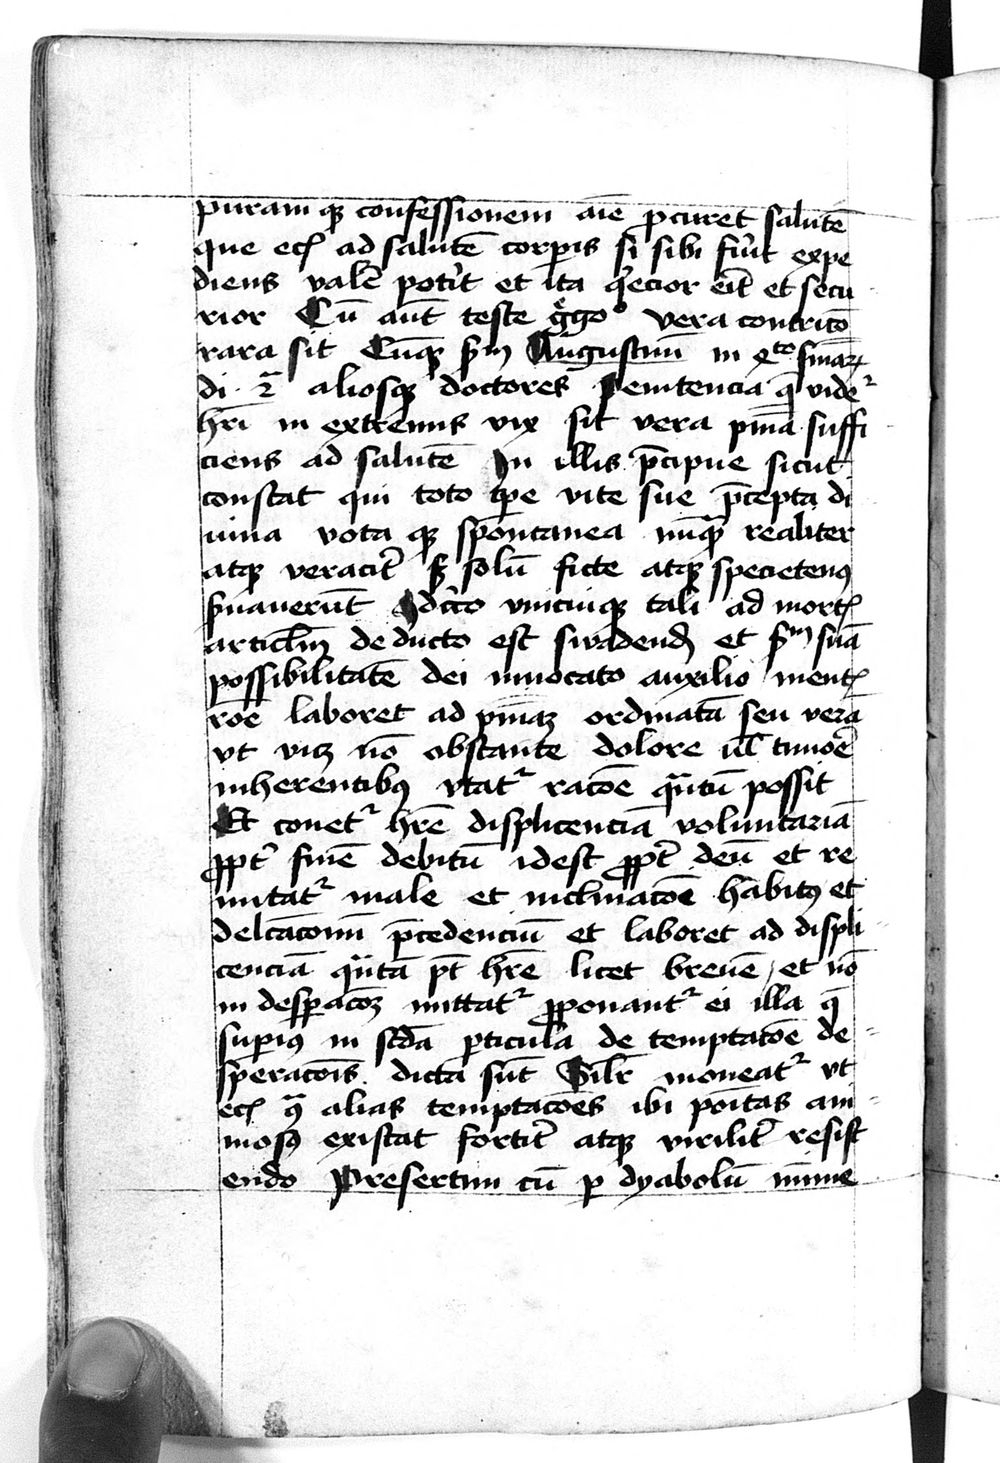 puram qꝫ confessionem aīe ꝓcuret salutē
que ecꝭ ad salutē corꝑis si sibi fu͛it expe
diens valē pot͛it et ita q͛ecior erit et secu
rior Cū aūt teste g̊go° vera contritō
rara sit Cūqꝫ ẜm Augustinū in q͛to sniaꝝ
di · 2ª aliosqꝫ doctores Penitencia q̄ vide᷑
hr̄i in extremis vix sit vera pn̄ia suffi
ciens ad salutē In illis p̄cipue sicut
constat qui toto tꝑe vite sue p̄cepta di
uina vota qꝫ spontanea nūqᷓ realiter
atqꝫ veracit͛ sꝫ solū ficte atqꝫ specietenꝰ
ẜuauerūt Idcirco vnicuiqꝫ tali ad mortꝭ
articl̄m deducto est suadendū et ẜm suā
possibilitatē dei inuocato auxilio mentꝭ
rōe laboret ad pn̄iaꝫ ordinatā seu verā
vt viꝫ nō obstante dolore ul̄ timoē
inherentibꝰ vtat᷑ racōe qᷓntū possit
Et conet᷑ hr̄e displicenciā voluntariā
ꝓpt͛ finē debitū idest ꝓpt͛ deū et re
nitat᷑ male et inclinacōe habitꝰ et
delc̄acōnū p̄cedenciū et laboret ad displi
cenciā qᷓntā pt̄ hr̄e licet breuē / et nō
in desꝑacōꝫ mittat᷑ ꝓponant᷑ ei illa q̄
suꝑiꝰ in sc̄da ꝑticula de temptacōe de
speracōis dicta sūt Silr̄ moneat᷑ vt
ecꝭ ꝯᷓ alias temptacōes ibi po͛itas ani
mosꝰ existat fortit͛ atqꝫ virilit͛ resist
endo Presertim cū ꝑ dyabolū mīme